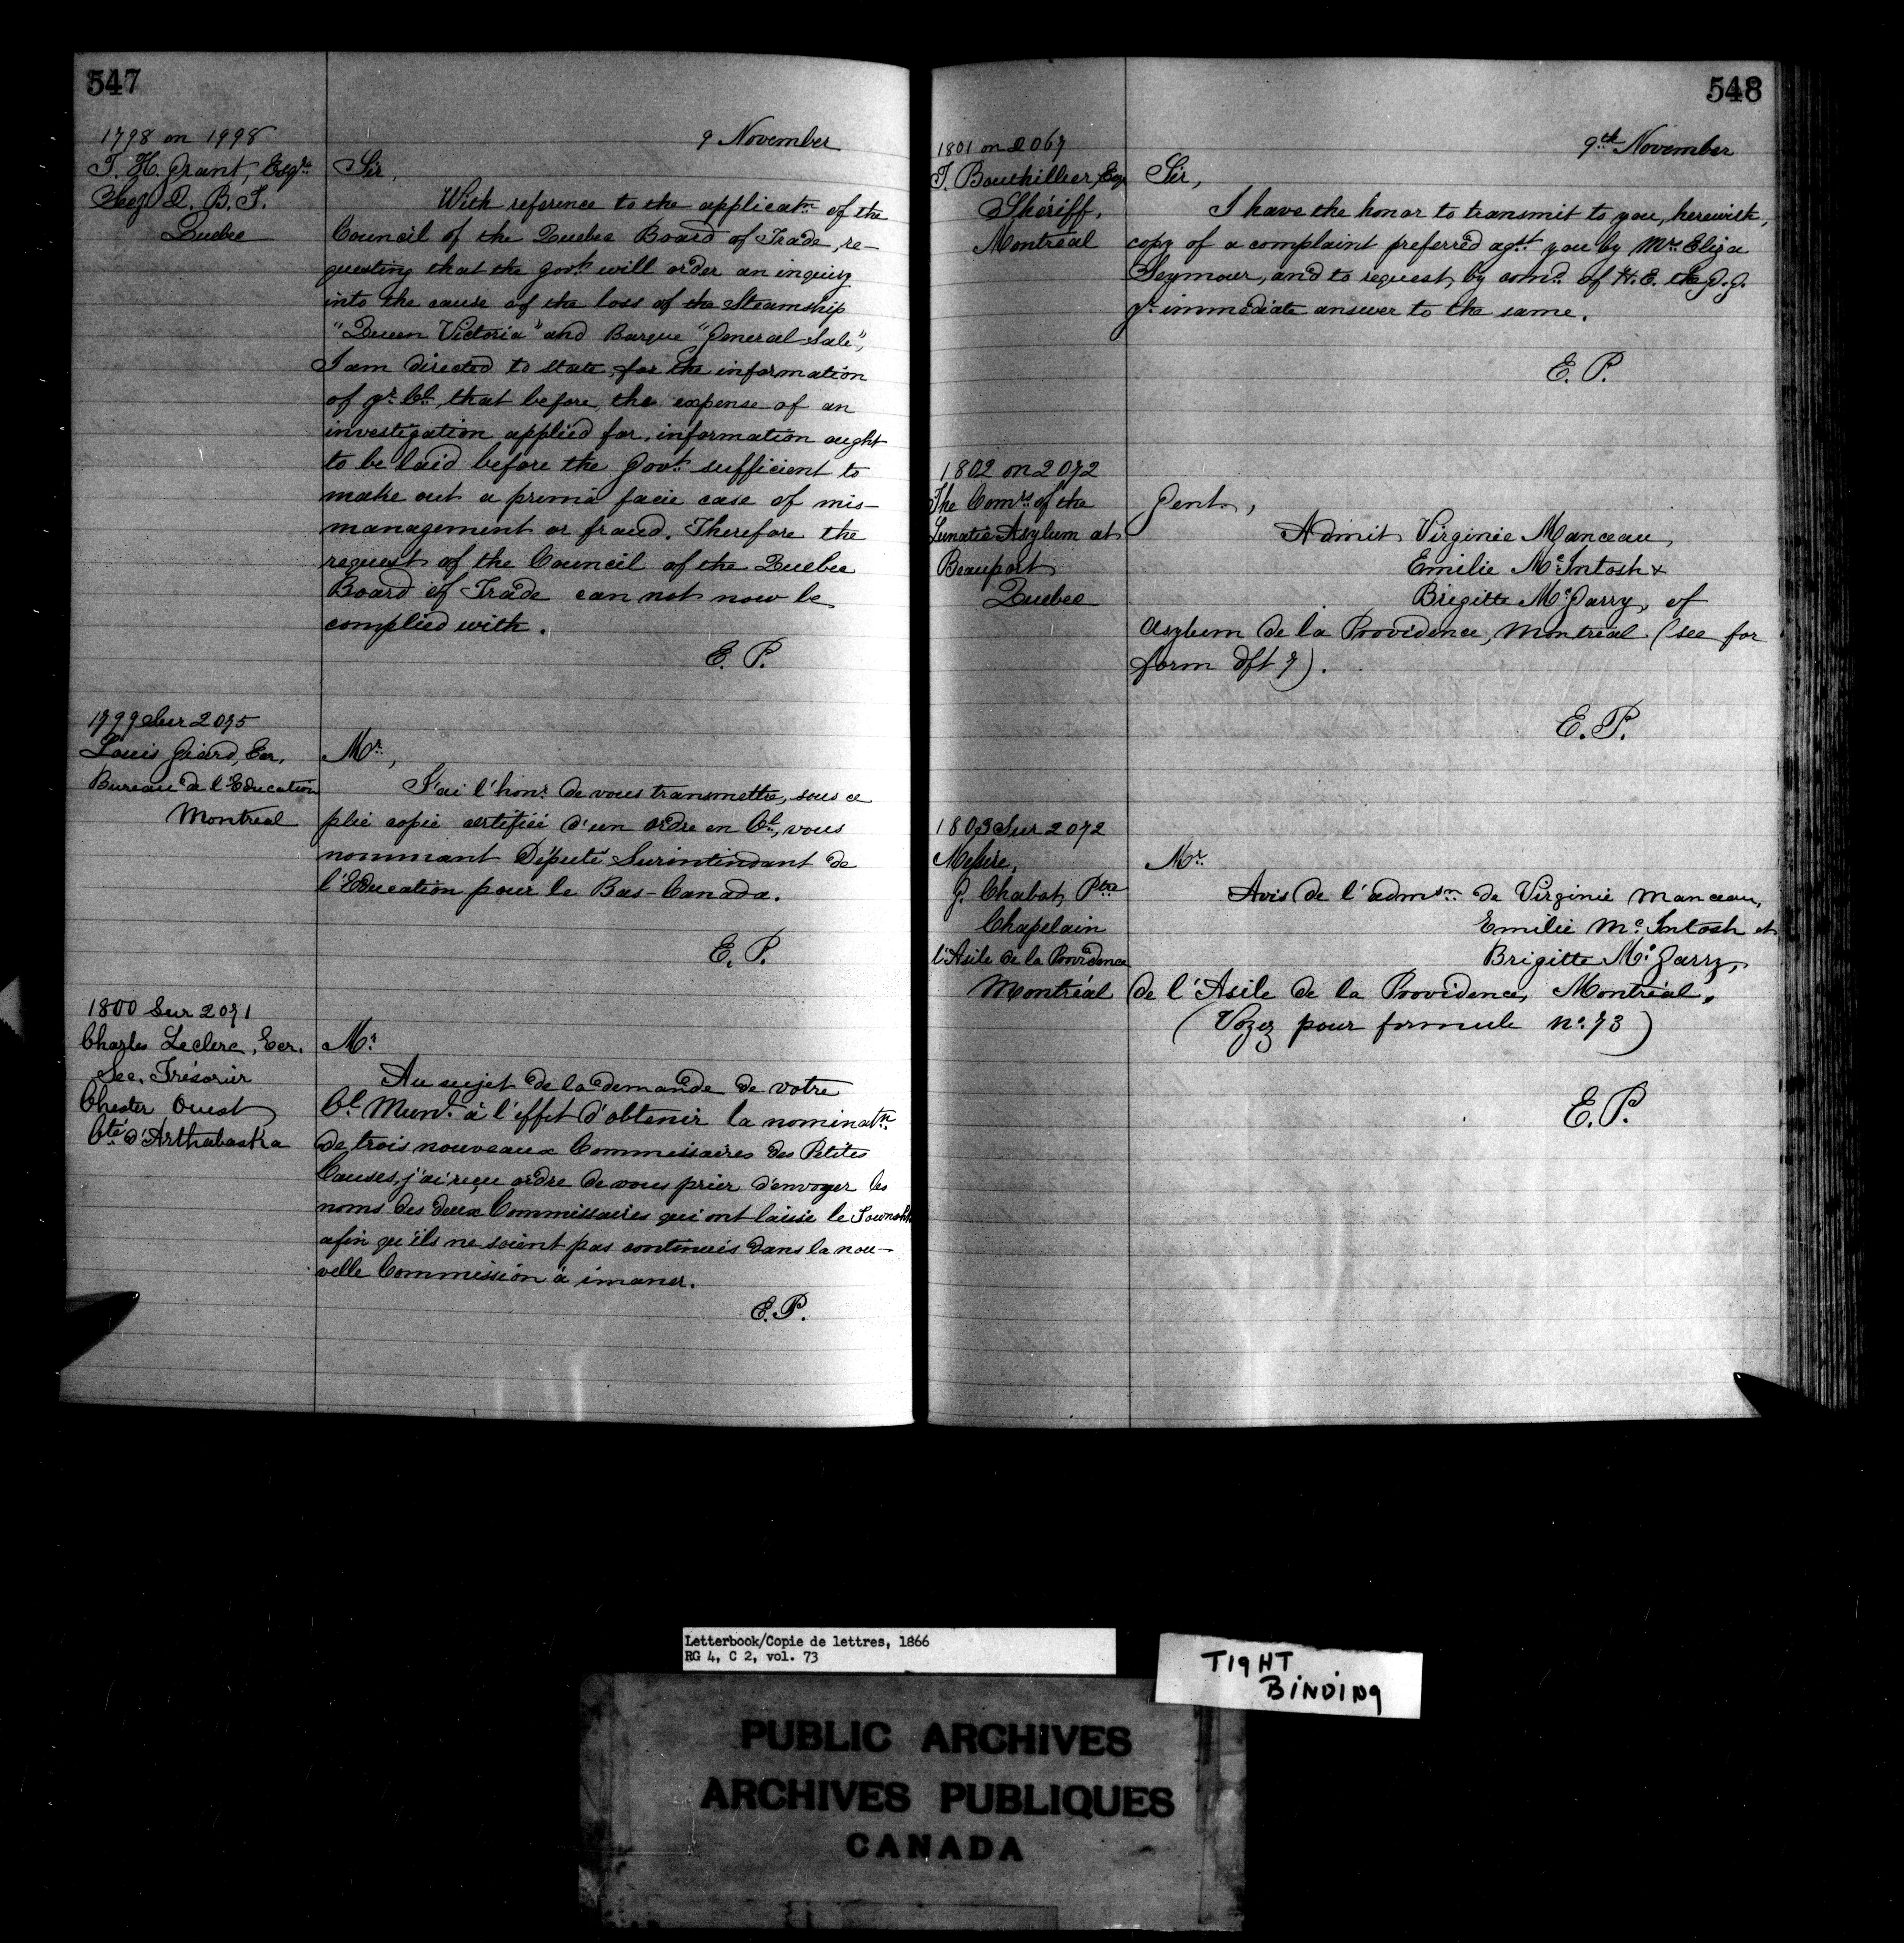 547
9 November
1798 on 1998
T. H. Grant, Esqr.
Q. B. T.
Quebec
Sir,
With reference to the applicatn of the
Council of the Quebec Board of Trade, re-
questing that the Govt. will order an inquiry
into the cause of the loss of the Steamship
"Queen Victoria" and Barque "General Sale",
I am directed to state, for the information
of yr. Cl., that before, the expense of an
investigation applied for, information ought
to be laid before the Govt. sufficient to
make out a prima facie case of mis-
management or fraud. Therefore the
request of the Council of the Quebec
Board of Trade can not now be
complied with.
E. P.
1799 Sur 2075
Louis Giard, Ecr.
Bureau de l'Education
Montreal
Mr.,
J'ai l'honr. de vous transmettre, sous ce
plie copie certifiée d'un ordre en Cl., vous
nommant Député Surintendant de
l'Education pour le Bas-Canada.
E. P.
1800 Sur 2071
Charles Leclerc, Ecr.
Sec. Trésorier
Chester Ouest
Cté d'Arthabaska
Mr.
Au sujet de la demande de votre
Cl. Munl. à l'effet d'obtenir la nominatn.
de trois nouveaux Commissaires des Petites
Causes, j'ai reçu ordre de vous prier d'envoyer les
noms des deux Commissaires qui ont laissé le Township
afin qu'ils ne soient pas continués dans la nou-
velle Commission à émaner.
E. P.
548
9th November
1801 on 2067
T. Bouthillier, Esqr
Shériff,
Montréal
Sir,
I have the honor to transmit to you, herewith,
copy of a complaint preferred agst. you by Mrs. Eliza
Seymour, and to request, by comd. of H. E. the G. G.
yr. immediate answer to the same.
E. P.
1802 on 2072
The Comrs of the
Lunatic Asylum at
Beauport
Quebec
Gent.,
Admit Virginie Manceau,
Emilie McIntosh &
Brigitte McGarry, of
Asylum de la Providence, Montreal. (see for
form dft 7).
E. P.
1803 Sur 2072
Messire,
G. Chabot, Ptre
Chapelain
l'Asile de la Providence
Montréal
Mr.
Avis de l'admsn. de Virginie Manceau,
Emilie McIntosh et
Brigitte McGarry,
de l'Asile de la Providence, Montréal.
(Voyez pour formule no. 73)
E. P.
Letterbook/Copie de lettres, 1866
RG 4, C 2, vol. 73
TIGHT
BINDING
PUBLIC ARCHIVES
ARCHIVES PUBLIQUES
CANADA